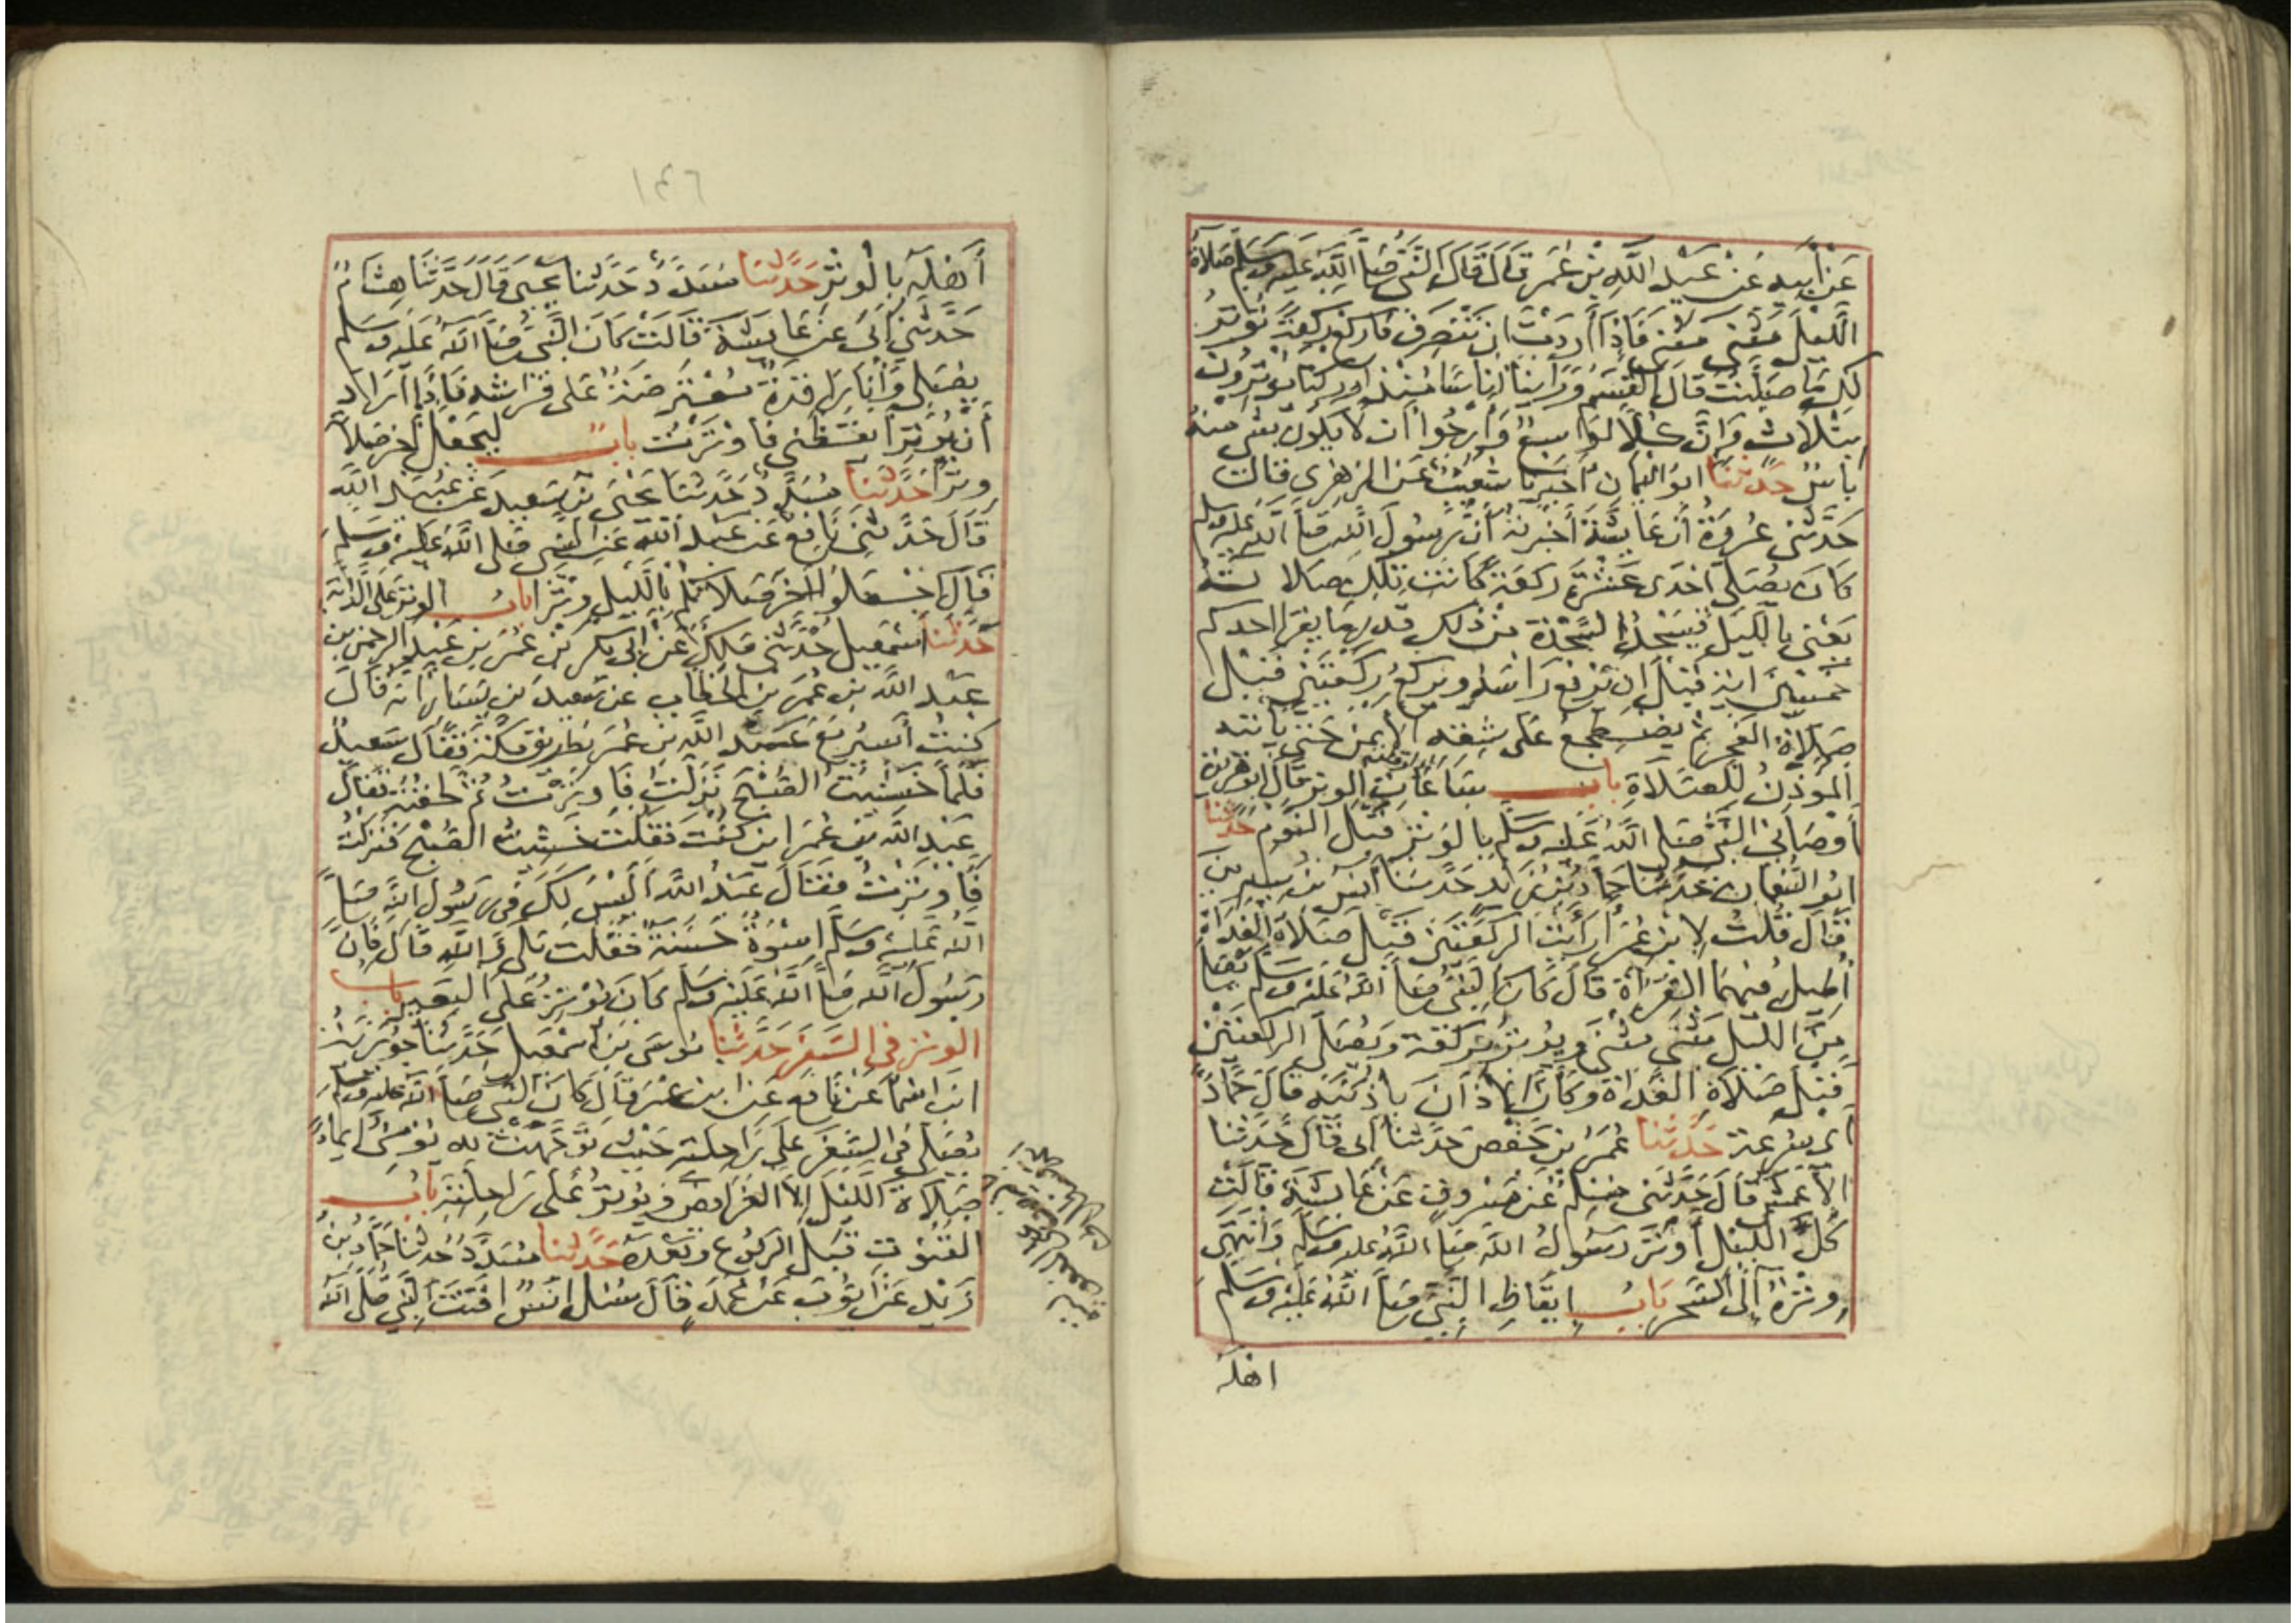 عَنْ أَبِيهِ عَنْ عَبْدِ اللَّهِ بْنِ عُمَرَ قَالَ قَالَ النَّبِيُّ صَلَّى اللَّهُ عَلَيْهِ وَسَلَّمَ صَلَاةُ
اللَّيْلِ مَثْنَى مَثْنَى فَإِذَا أَرَدْتَ أَنْ تَنْصَرِفَ فَارْكَعْ رَكْعَةً تُوتِرُ
لَكَ مَا صَلَّيْتَ قَالَ الْقَسِمُ وَرَأَيْنَا أُنَاسًا مُنْذُ أَدْرَكْنَا يُوتِرُونَ
بِثَلَاثٍ وَإِنَّ كُلًّا لَوَاسِعٌ وَأَرْجُوا أَنْ لَا يَكُونَ بِشَيْءٍ مِنْهُ
بَأْسٌ حَدَّثَنَا أَبُو الْيَمَانِ أَخْبَرَنَا شُعَيْبٌ عَنِ الزُّهْرِيِّ قَالَ
حَدَّثَنِي عُرْوَةُ أَنَّ عَائِشَةَ أَخْبَرَتْهُ أَنَّ رَسُولَ اللَّهِ صَلَّى اللَّهُ عَلَيْهِ وَسَلَّمَ
كَانَ يُصَلِّي إِحْدَى عَشْرَةَ رَكْعَةً كَانَتْ تِلْكَ صَلَاتُهُ
يَعْنِي بِاللَّيْلِ فَيَسْجُدُ السَّجْدَةَ مِنْ ذَلِكَ قَدْرَ مَا يَقْرَأُ أَحَدُكُمْ
خَمْسِينَ آيَةً قَبْلَ أَنْ يَرْفَعَ رَأْسَهُ وَيَرْكَعُ رَكْعَتَيْنِ قَبْلَ
صَلَاةِ الْفَجْرِ ثُمَّ يَضْطَجِعُ عَلَى شِقِّهِ الْأَيْمَنِ حَتَّى يَأْتِيَهُ
الْمُؤَذِّنُ لِلصَّلَاةِ بَابُ سَاعَاتِ الْوِتْرِ قَالَ أَبُو هُرَيْرَةَ
أَوْصَانِي النَّبِيُّ صَلَّى اللَّهُ عَلَيْهِ وَسَلَّمَ بِالْوِتْرِ قَبْلَ النَّوْمِ حَدَّثَنَا
أَبُو النُّعْمَانِ حَدَّثَنَا حَمَّادُ بْنُ زَيْدٍ حَدَّثَنَا أَنَسُ بْنُ سِيرِينَ
قَالَ قُلْتُ لِابْنِ عُمَرَ أَرَأَيْتَ الرَّكْعَتَيْنِ قَبْلَ صَلَاةِ الْغَدَاةِ
أُطِيلُ فِيهِمَا الْقِرَاءَةَ قَالَ كَانَ النَّبِيُّ صَلَّى اللَّهُ عَلَيْهِ وَسَلَّمَ يُصَلِّي
مِنَ اللَّيْلِ مَثْنَى مَثْنَى وَيُوتِرُ بِرَكْعَةٍ وَيُصَلِّي الرَّكْعَتَيْنِ
قَبْلَ صَلَاةِ الْغَدَاةِ وَكَأَنَّ الْأَذَانَ بِأُذُنَيْهِ قَالَ حَمَّادٌ
أَيْ بِسُرْعَةٍ حَدَّثَنَا عُمَرُ بْنُ حَفْصٍ حَدَّثَنَا أَبِي قَالَ حَدَّثَنَا
الْأَعْمَشُ قَالَ حَدَّثَنِي مُسْلِمٌ عَنْ مَسْرُوقٍ عَنْ عَائِشَةَ قَالَتْ
كُلَّ اللَّيْلِ أَوْتَرَ رَسُولُ اللَّهِ صَلَّى اللَّهُ عَلَيْهِ وَسَلَّمَ وَانْتَهَى
وِتْرُهُ إِلَى السَّحَرِ بَابُ إِيقَاظِ النَّبِيِّ صَلَّى اللَّهُ عَلَيْهِ وَسَلَّمَ
اهله
١٤٦
أَهْلَهُ بِالْوِتْرِ حَدَّثَنَا مُسَدَّدٌ حَدَّثَنَا يَحْيَى قَالَ حَدَّثَنَا هِشَامٌ
حَدَّثَنِي أَبِي عَنْ عَائِشَةَ قَالَتْ كَانَ النَّبِيُّ صَلَّى اللَّهُ عَلَيْهِ وَسَلَّمَ
يُصَلِّي وَأَنَا رَاقِدَةٌ مُعْتَرِضَةٌ عَلَى فِرَاشِهِ فَإِذَا أَرَادَ
أَنْ يُوتِرَ أَيْقَظَنِي فَأَوْتَرْتُ بَابٌ لِيَجْعَلْ آخِرَ صَلَاتِهِ
وِتْرًا حَدَّثَنَا مُسَدَّدٌ حَدَّثَنَا يَحْيَى بْنُ سَعِيدٍ عَنْ عُبَيْدِ اللَّهِ
قَالَ حَدَّثَنِي نَافِعٌ عَنْ عَبْدِ اللَّهِ عَنِ النَّبِيِّ صَلَّى اللَّهُ عَلَيْهِ وَسَلَّمَ
قَالَ اجْعَلُوا آخِرَ صَلَاتِكُمْ بِاللَّيْلِ وِتْرًا بَابُ الْوِتْرِ عَلَى الدَّابَّةِ
حَدَّثَنَا إِسْمَعِيلُ حَدَّثَنِي مَلِكٌ عَنْ أَبِي بَكْرِ بْنِ عُمَرَ بْنِ عَبْدِ الرَّحْمَنِ بْنِ
عَبْدِ اللَّهِ بْنِ عُمَرَ بْنِ الْخَطَّابِ عَنْ سَعِيدِ بْنِ يَسَارٍ أَنَّهُ قَالَ
كُنْتُ أَسِيرُ مَعَ عَبْدِ اللَّهِ بْنِ عُمَرَ بِطَرِيقِ مَكَّةَ فَقَالَ سَعِيدٌ
فَلَمَّا خَشِيتُ الصُّبْحَ نَزَلْتُ فَأَوْتَرْتُ ثُمَّ لَحِقْتُهُ فَقَالَ
عَبْدُ اللَّهِ بْنُ عُمَرَ أَيْنَ كُنْتَ فَقُلْتُ خَشِيتُ الصُّبْحَ فَنَزَلْتُ
فَأَوْتَرْتُ فَقَالَ عَبْدُ اللَّهِ أَلَيْسَ لَكَ فِي رَسُولِ اللَّهِ صَلَّى
اللَّهُ عَلَيْهِ وَسَلَّمَ إِسْوَةٌ حَسَنَةٌ فَقُلْتُ بَلَى وَاللَّهِ قَالَ فَإِنَّ
رَسُولَ اللَّهِ صَلَّى اللَّهُ عَلَيْهِ وَسَلَّمَ كَانَ يُوتِرُ عَلَى الْبَعِيرِ بَابُ
الْوِتْرِ فِي السَّفَرِ حَدَّثَنَا مُوسَى بْنُ إِسْمَعِيلَ حَدَّثَنَا جُوَيْرِيَةُ
ابْنُ أَسْمَاءَ عَنْ نَافِعٍ عَنِ ابْنِ عُمَرَ قَالَ كَانَ النَّبِيُّ صَلَّى اللَّهُ عَلَيْهِ وَسَلَّمَ
يُصَلِّي فِي السَّفَرِ عَلَى رَاحِلَتِهِ حَيْثُ تَوَجَّهَتْ بِهِ يُومِئُ إِيمَاءً
صَلَاةَ اللَّيْلِ إِلَّا الْفَرَائِضَ وَيُوتِرُ عَلَى رَاحِلَتِهِ بَابُ
الْقُنُوتِ قَبْلَ الرُّكُوعِ وَبَعْدَهُ حَدَّثَنَا مُسَدَّدٌ حَدَّثَنَا حَمَّادُ بْنُ
زَيْدٍ عَنْ أَيُّوبَ عَنْ مُحَمَّدٍ قَالَ سُئِلَ أَنَسٌ أَقَنَتَ النَّبِيُّ صَلَّى اللَّهُ